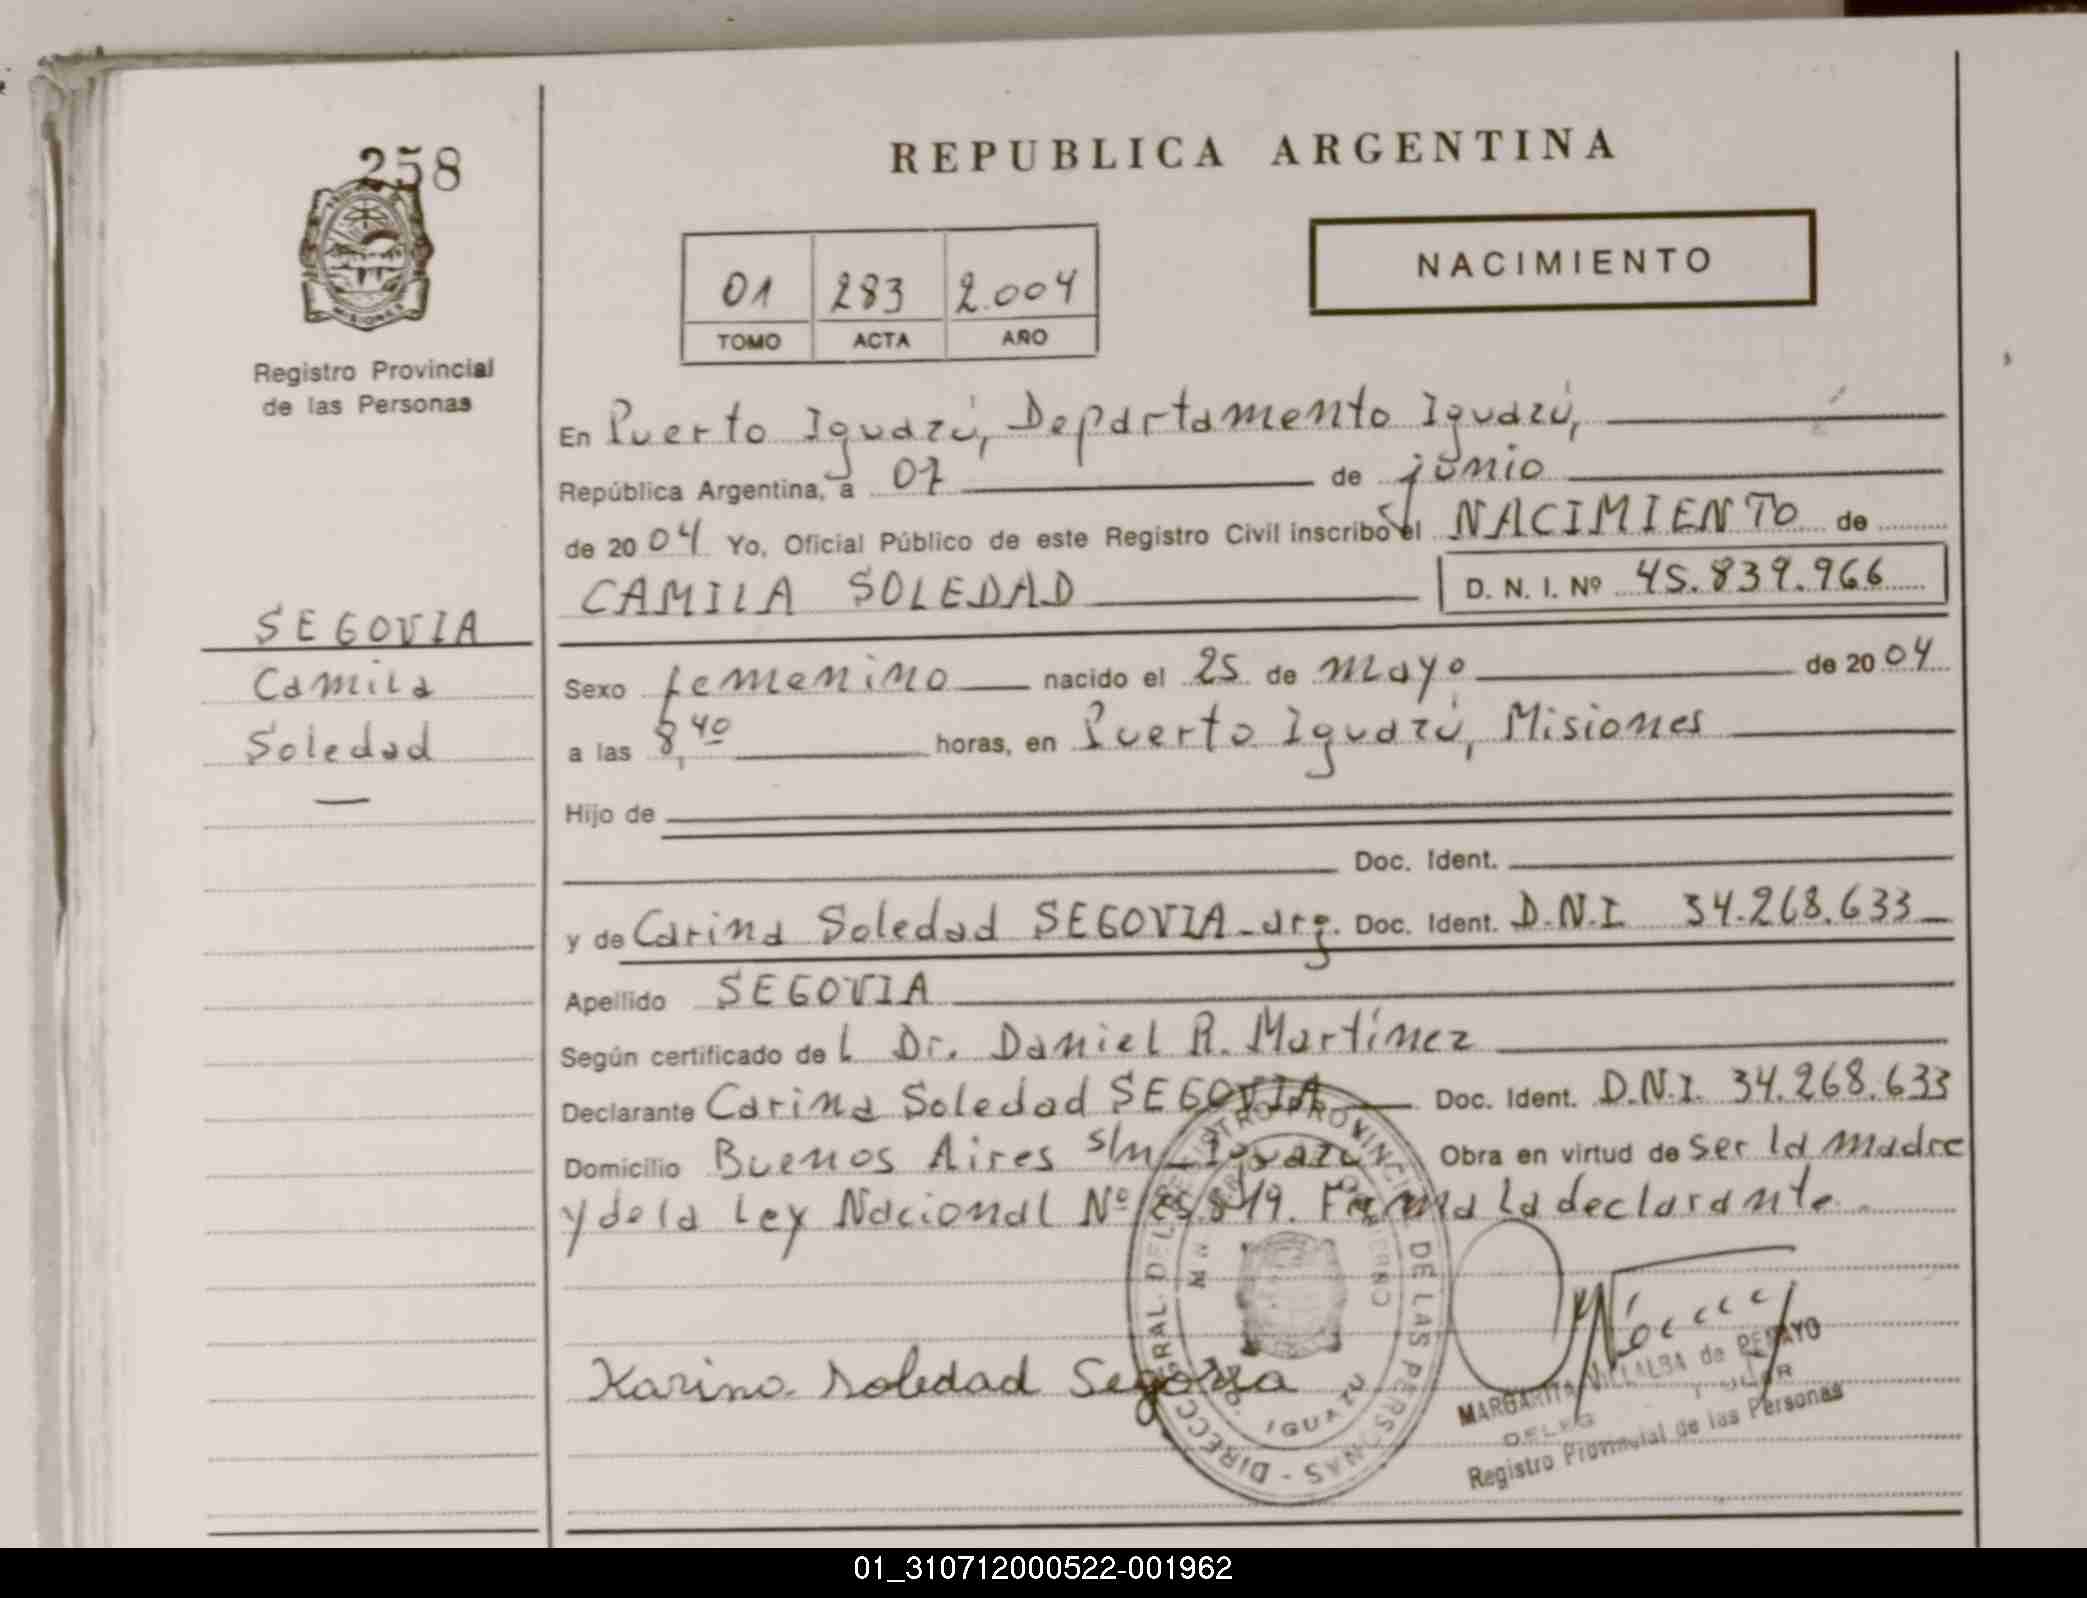 258
MISIONES
Registro Provincial
de las Personas
SEGOVIA
Camila
Soledad
REPUBLICA ARGENTINA
01 283 2.004
TOMO ACTA AÑO
NACIMIENTO
En Puerto Iguazú, Departamento Iguazú,
República Argentina, a 07 de junio
de 2004 Yo, Oficial Público de este Registro Civil inscribo el NACIMIENTO de
CAMILA SOLEDAD D. N. I. Nº 45.839.966
Sexo femenino nacido el 25 de mayo de 2004
a las 8,40 horas, en Puerto Iguazú, Misiones
Hijo de
Doc. Ident.
y de Carina Soledad SEGOVIA - arg. Doc. Ident. D.N.I 34.268.633
Apellido SEGOVIA
Según certificado del Dr. Daniel R. Martínez
Declarante Carina Soledad SEGOVIA Doc. Ident. D.N.I. 34.268.633
Domicilio Buenos Aires s/n - Iguazú Obra en virtud de ser la madre
y de la Ley Nacional Nº Firma la declarante.
Karina Soledad Segovia
DIRECC. GRAL. DEL REGISTRO PROVINCIAL DE LAS PERSONAS -
IGUAZU
MARGARITA VILLALBA de
Registro Provincial de las Personas
01_310712000522-001962